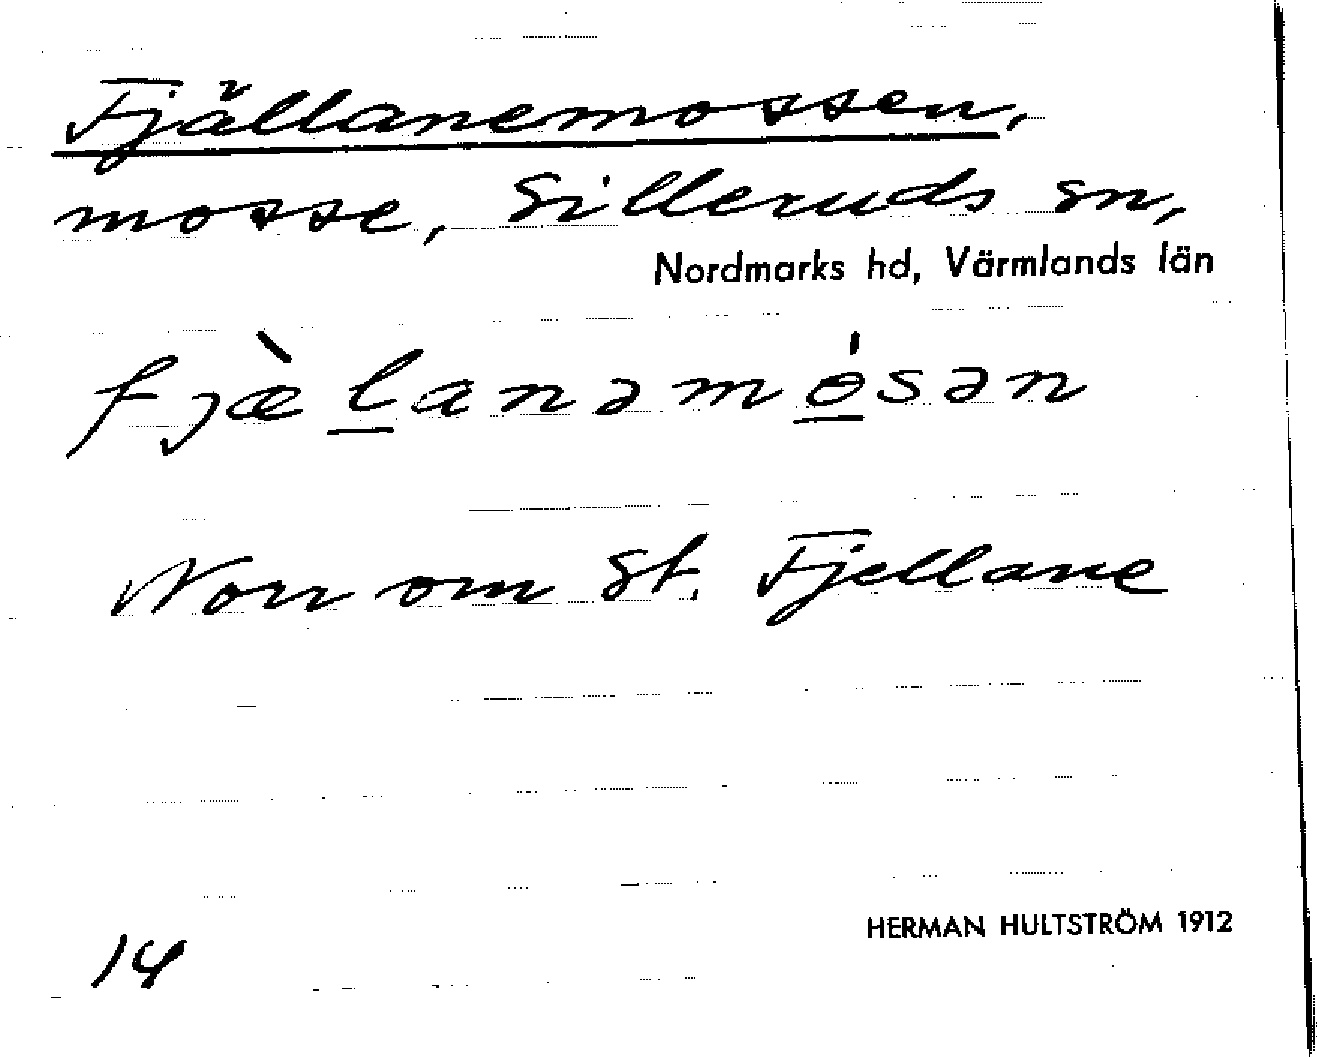 Fjällanemossen,
mosse, Silleruds sn,
Nordmarks hd, Värmlands län
fjæ̀lanəmósən
Norr om St. Fjellane
HERMAN HULTSTRÖM 1912
14